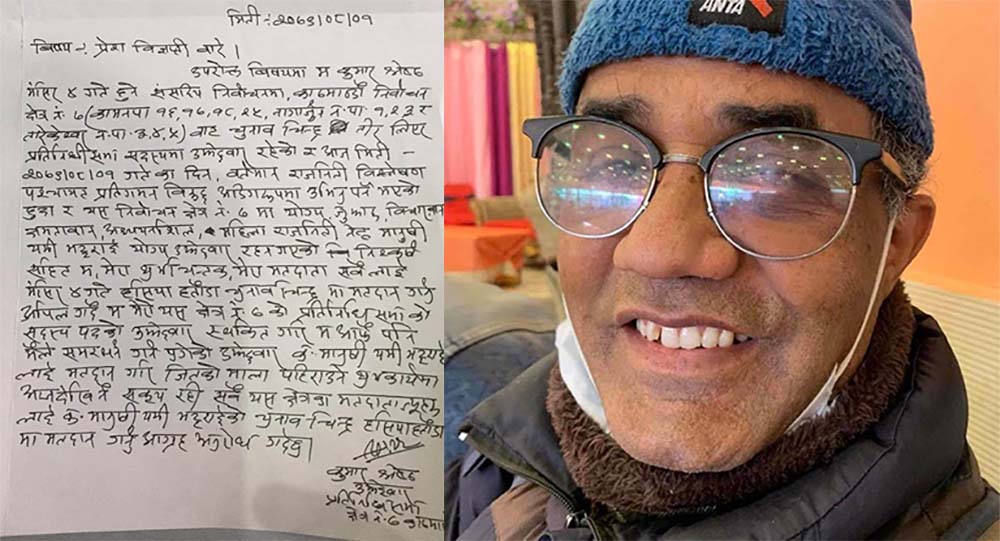 मिती :- २०७९/०८/०१
विषय :- प्रेस विज्ञप्ती बारे ।
उपरोक्त विषयमा म कुमार श्रेष्ठ
मंसिर ४ गते हुने संसदिय निर्वाचनमा, काठमाडौं निर्वाचन
क्षेत्र नं. ७ (कामनपा १६,१७,१८,२५, नागार्जुन न.पा. १,२,३ र
तारकेश्वर न.पा. ३,४,५) बाट चुनाव चिन्ह तीर लिएर
प्रतिनिधीसभा सदस्यमा उम्मेदवार रहेको र आज मिती -
गतेका दिन, वर्तमान राजनिती विश्लेषण
प्रतिगमन विरुद्ध अडिग रुपमा उभिनु पर्ने भएको
हुदा र यस निर्वाचन क्षेत्र नं. ७ मा योग्य जुझारु
क्षमतावान, अध्ययनशिल, महिला राजनितीज्ञ मानुषी
यमी भट्टराई योग्य उम्मेदवार रहनु भएको निश्कर्ष
सहित म, मेरा शुभचिन्तक, मेरा मतदाता सबै लाई
मंसिर ४ गते हसिया हतौडा चुनाव चिन्ह मा मतदान गर्नु
अपिल गर्दै म मेरो यस क्षेत्र नं. ७ को प्रतिनिधि सभा को
सदस्य पदको उम्मेदवार स्थगित गरि म आफै पनि
मैले समर्थन गर्न पुगेको उम्मेदवार कु. मानुषी यमी भट्टराई
लाई मतदान गरि जितको माला पहिराउने शुभकार्यमा
रही सबै यस क्षेत्रका मतदाता
लाई कु. मानुषी यमी भट्टराईको चुनाव चिन्ह हसिया हतौडा
मा मतदान गर्नु आग्रह अनुरोध गर्दछु।
कुमार श्रेष्ठ
उम्मेदवार
प्रतिनिधिसभा
क्षेत्र नं. ७ काठमाडौं
ANTA